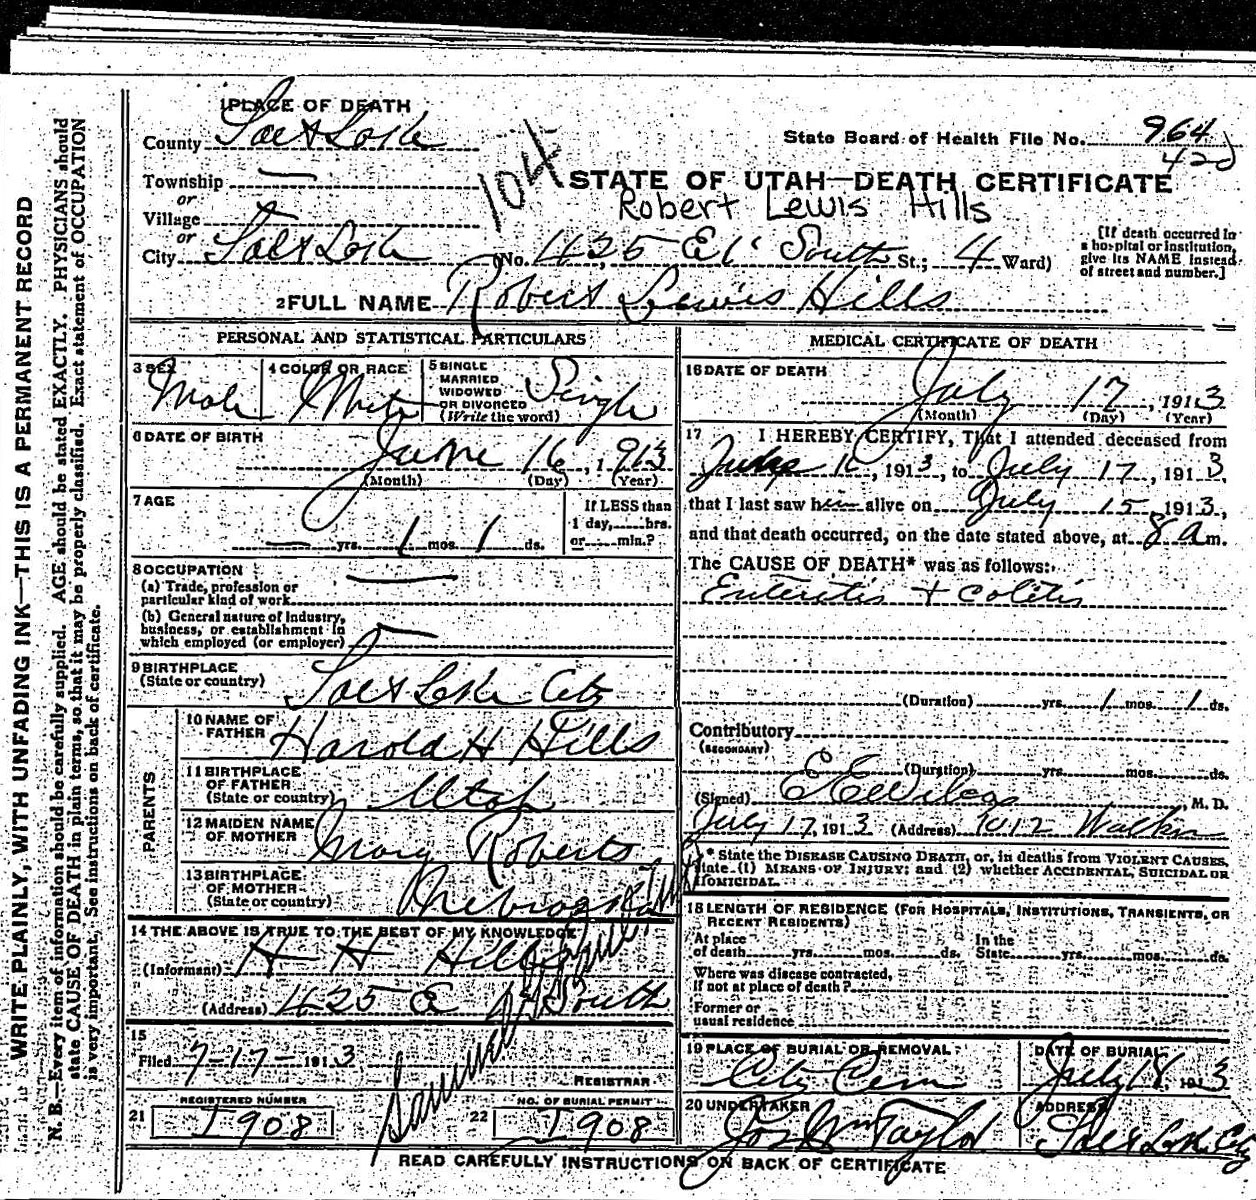 WRITE PLAINLY, WITH UNFADING INK—THIS IS A PERMANENT RECORD
N. B.—Every item of information should be carefully supplied. AGE should be stated EXACTLY. PHYSICIANS should
state CAUSE OF DEATH in plain terms, so that it may be properly classified. Exact statement of OCCUPATION
is very important. See instructions on back of certificate.
1 PLACE OF DEATH
County Salt Lake
State Board of Health File No. 964
420
104
Township —
or
Village
or
STATE OF UTAH—DEATH CERTIFICATE
Robert Lewis Hills
City Salt Lake (No. 425 E 1st South St.; 4 Ward)
[If death occurred in
a hospital or institution,
give its NAME instead
of street and number.]
2 FULL NAME Robert Lewis Hills
PERSONAL AND STATISTICAL PARTICULARS
3 SEX Male
4 COLOR OR RACE White
5 SINGLE
MARRIED
WIDOWED
OR DIVORCED
(Write the word) Single
6 DATE OF BIRTH
June 16, 1913
(Month) (Day) (Year)
7 AGE
— yrs. 1 mos. 1 ds.
If LESS than
1 day, hrs.
or min.?
8 OCCUPATION
(a) Trade, profession or
particular kind of work —
(b) General nature of industry,
business, or establishment in
which employed (or employer) —
9 BIRTHPLACE
(State or country) Salt Lake City
PARENTS
10 NAME OF
FATHER Harold H Hills
11 BIRTHPLACE
OF FATHER
(State or country) Utah
12 MAIDEN NAME
OF MOTHER Mary Roberts
13 BIRTHPLACE
OF MOTHER
(State or country) Nebraska
14 THE ABOVE IS TRUE TO THE BEST OF MY KNOWLEDGE
(Informant) H H Hills
(Address) 425 E 1st South
15
Filed 7-17-1913
REGISTRAR
Samuel
21 REGISTERED NUMBER
I908
22 NO. OF BURIAL PERMIT
I908
MEDICAL CERTIFICATE OF DEATH
16 DATE OF DEATH
July 17, 1913
(Month) (Day) (Year)
17 I HEREBY CERTIFY, That I attended deceased from
June 16, 1913, to July 17, 1913,
that I last saw him alive on July 15 1913,
and that death occurred, on the date stated above, at 8 a m.
The CAUSE OF DEATH* was as follows:
Enteritis + colitis
(Duration) yrs. 1 mos. 1 ds.
Contributory
(SECONDARY)
(Duration) yrs. mos. ds.
(Signed) E E Wilcox, M. D.
July 17, 1913 (Address) 1012 Walker
* State the DISEASE CAUSING DEATH, or, in deaths from VIOLENT CAUSES,
state (1) MEANS OF INJURY; and (2) whether ACCIDENTAL, SUICIDAL OR
HOMICIDAL.
18 LENGTH OF RESIDENCE (FOR HOSPITALS, INSTITUTIONS, TRANSIENTS, OR
RECENT RESIDENTS)
At place
of death yrs. mos. ds.
In the
State yrs. mos. ds.
Where was disease contracted,
If not at place of death?
Former or
usual residence
19 PLACE OF BURIAL OR REMOVAL
City Cem
DATE OF BURIAL
July 18 1913
20 UNDERTAKER
Jos Wm Taylor
ADDRESS
Salt Lake City
READ CAREFULLY INSTRUCTIONS ON BACK OF CERTIFICATE